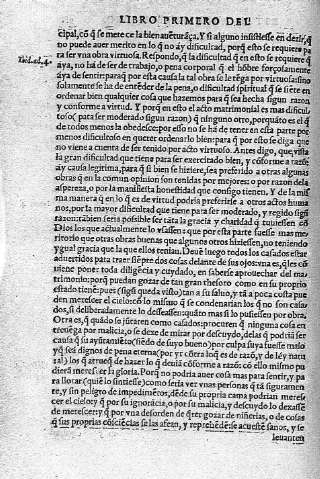 LIBRO PRIMERO DEL
cipal, cõ q̃ se merece la bienauẽturãça, Y si alguno insistiesse en dezir, q̃
no puede auer merito en lo q̃ no ay dificultad, porq̃ esto se requiere pa
ra ser vna obra virtuosa. Respondo, q̃ la dificultad q̃ en esto se requiere
aya, no ha de ser de trabajo, o pena corporal q̃ el hõbre forçosamente
aya de sentir: para q̃ por esta causa la tal obra se tẽga por virtuosa: sino
solamente se ha de entẽder de la pena, o dificultad spiritual q̃ se siẽte en
ordenar bien qualquier cosa que hazemos para q̃ sea hecha segun razon
y conforme a virtud. Y porq̃ en esto el acto matrimonial es mas dificul
toso (para ser moderado segun razon) q̃ ninguno otro, porquãto es el q̃
de todos menos la obedesce: por esso no se ha de tener en esta parte por
menos dificultoso en querer ordenarlo bien: para q̃ por esso se diga que
no viene a cuenta de ser tenido por acto virtuoso. Antes digo, que vista
la gran dificultad que tiene para ser exercitado bien, y cõforme a razõ:
ay causa legitima, para q̃ si bien se hiziere, sea preferido a otras algunas
obras q̃ en la comun opinion son tenidas por mejores: o por razon de la
aspereza, o por la manifiesta honestidad que consigo tienen. Y de la mis
ma manera q̃ en lo q̃ es de virtud podria preferirse a otros actos huma
nos, por la mayor dificultad que tiene para ser moderado, y regido segũ
razon: tãbien seria possible ser tãta la gracia y charidad
Dios los que actualmente lo vsassen: que por esta parte fuesse mas me
ritorio que otras obras buenas que algunos otros hiziessen, no teniendo
ygual gracia que la que ellos tenian. Deuẽ luego todos los casados estar
aduertidos para traer siẽpre dos cosas delante de sus ojos: vna es, q̃ les cõ
uiene poner toda diligẽcia y cuydado, en saberse aprouechar del ma
trimonio: porq̃ puedan gozar de tan gran thesoro como en su proprio
estado tienẽ: pues (segũ queda visto) tan a su saluo, y tã a poca costa pue
den merescer el cielo: cõ lo mismo q̃ se condenarian los q̃ no son casa
dos, si deliberadamente lo desseassen: quãto mas si lo pusiessen por obra.
Otra es, q̃ quãdo se juntaren como casados: procuren q̃ ninguna cosa en
treuẽga por malicia, o se dexe de mirar por descuydo, de las q̃ podria ser
causa q̃ su ayuntamiẽto (siẽdo de suyo bueno) por culpa suya fuesse malo
y q̃ seã dignos de pena eterna (por yr cõtra lo q̃ es de razõ, y de ley natu
ral) los q̃ a trueq̃ de hazer lo q̃ deuia cõforme a razõ: cõ ello mismo pu
dierã merescer la gloria. Porq̃ no podria auer cosa mas para sentir, y pa
ra llorar (quiẽ lo sintiesse) como seria ver vnas personas q̃ tã seguramen
te, y sin peligro de impedimẽtos, dẽde su propria cama podrian meres
cer el cielo: y q̃ por su ignorãcia, o por su malicia, y descuydo lo dexassẽ
de merescer: y q̃ por vna desorden de q̃rer gozar de niñerias, o de cosas
q̃ sus proprias cõsciẽcias se las afean, y reprehẽdẽ se acueste sanos, y se
leuanten